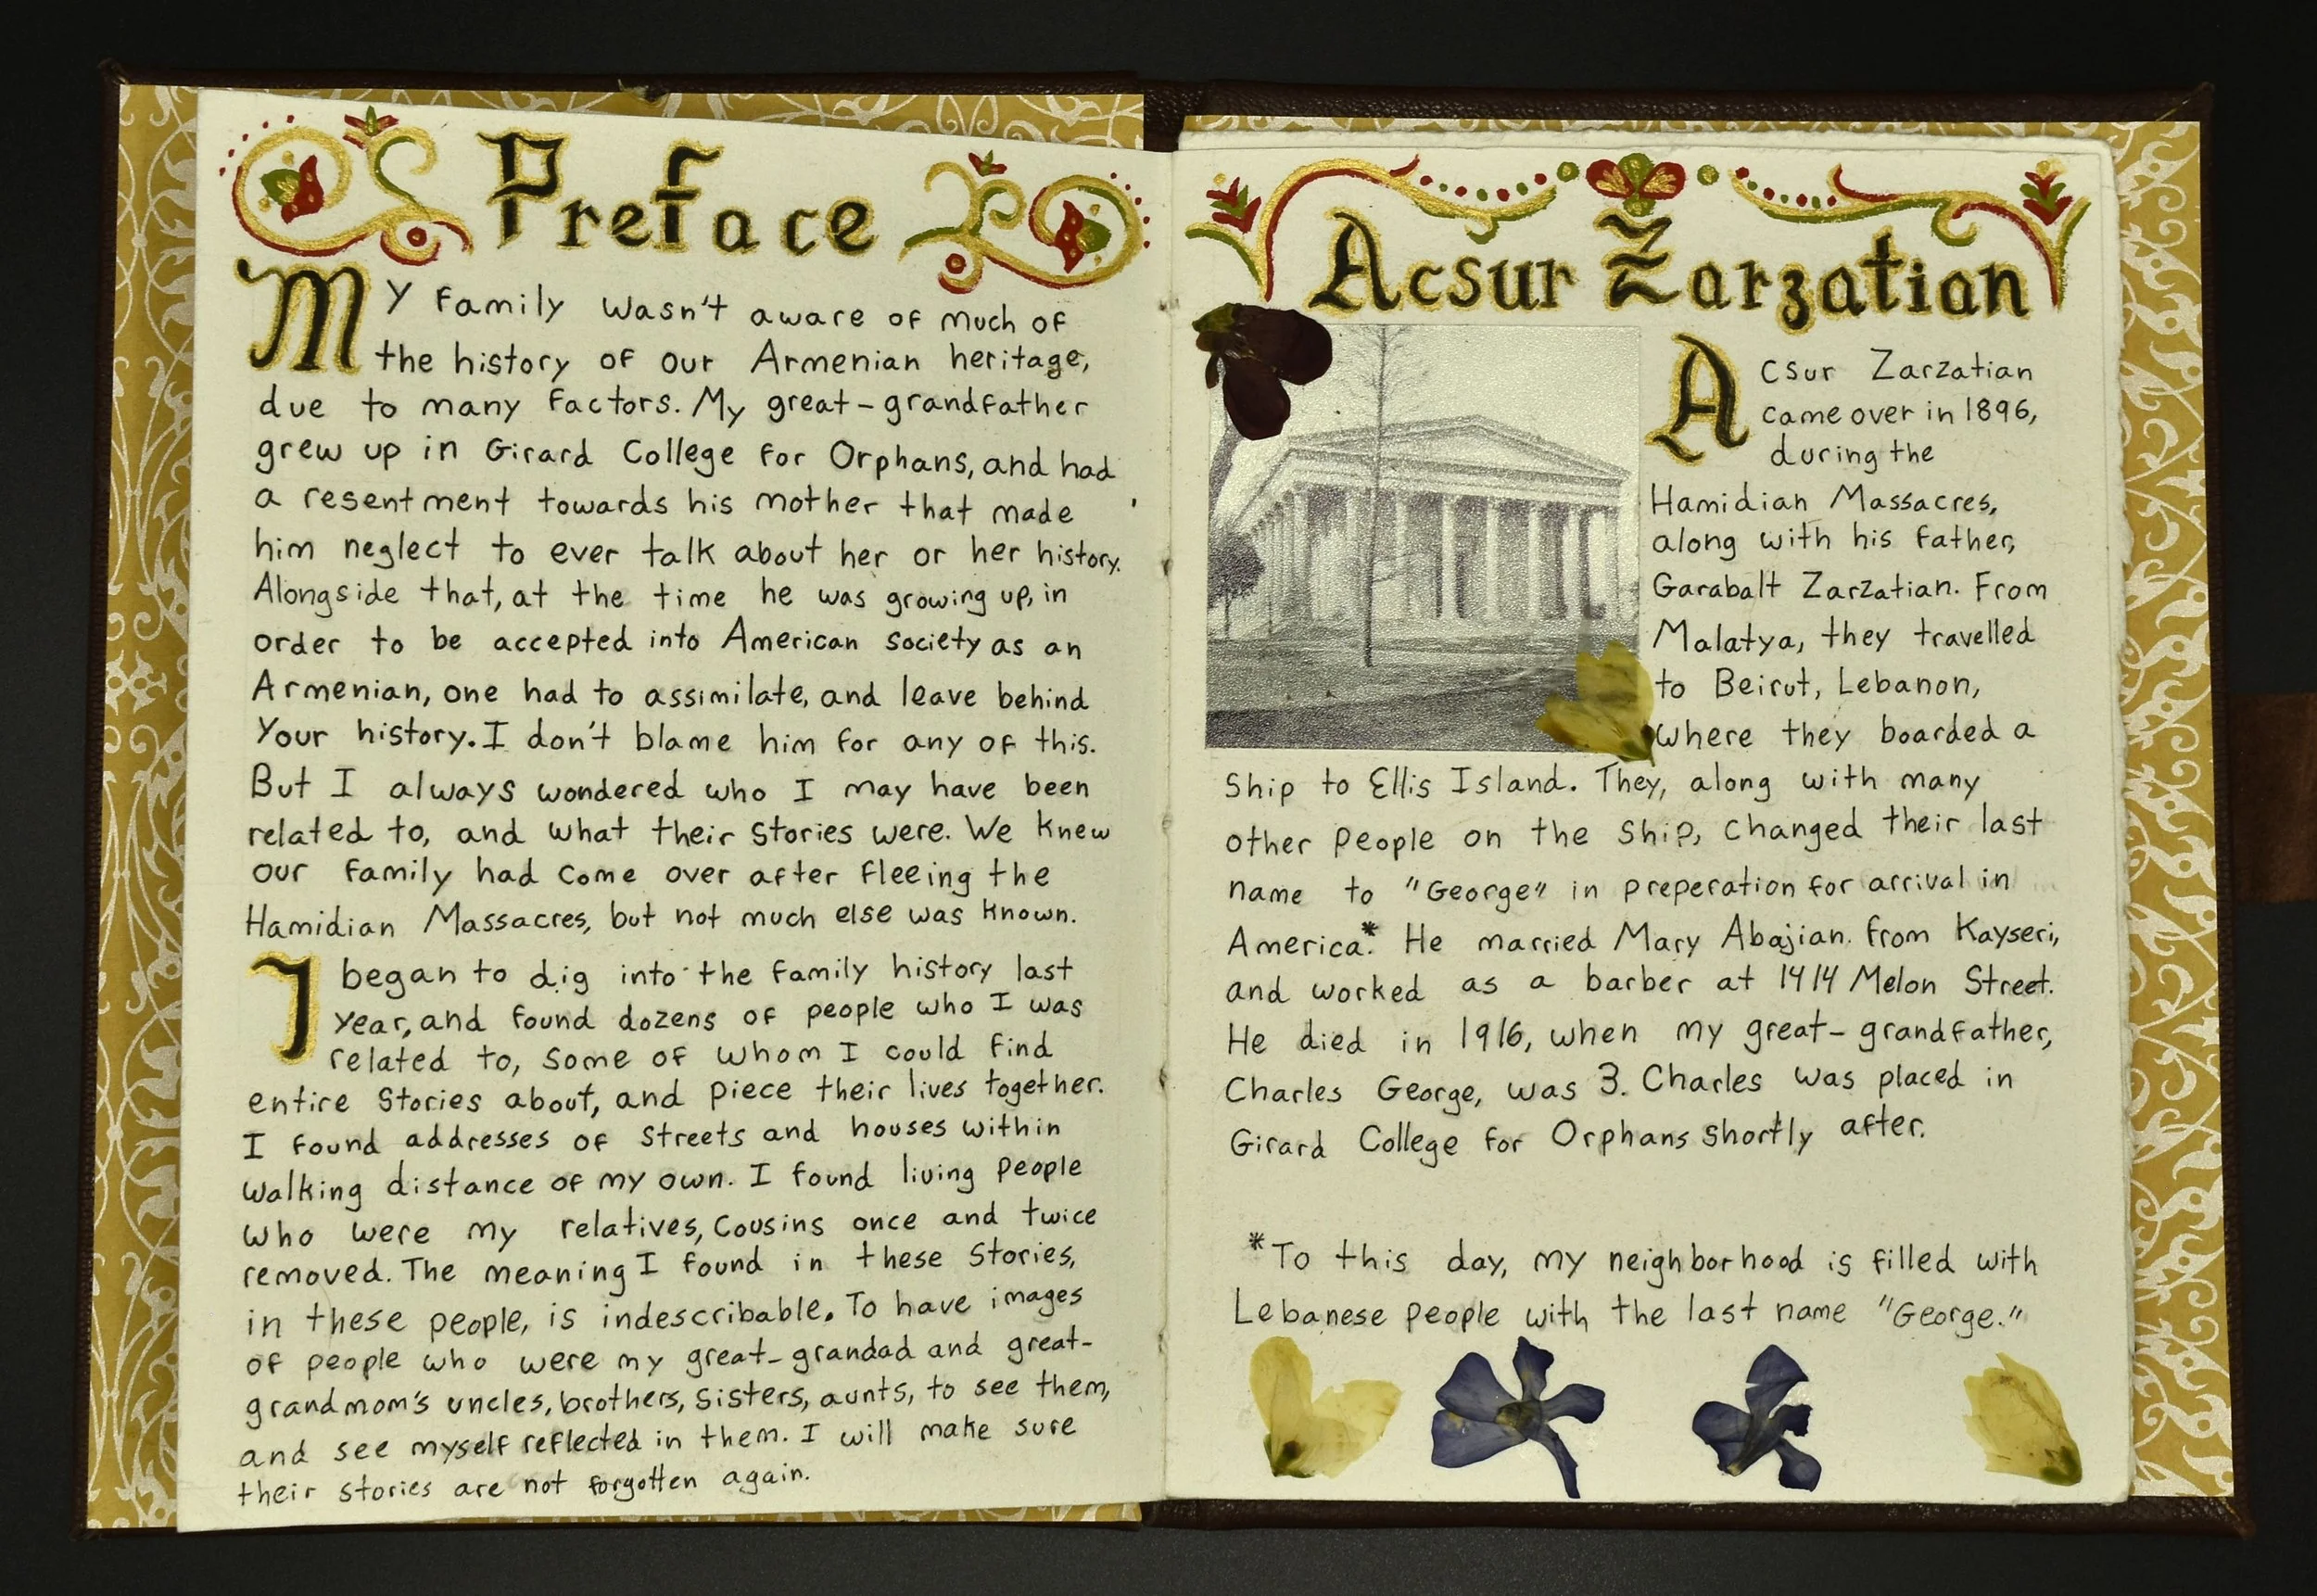 Preface
My family wasn't aware of much of
the history of our Armenian heritage,
due to many factors. My great-grandfather
grew up in Girard College for Orphans, and had
a resentment towards his mother that made
him neglect to ever talk about her or her history.
Alongside that, at the time he was growing up, in
order to be accepted into American society as an
Armenian, one had to assimilate, and leave behind
your history. I don't blame him for any of this.
But I always wondered who I may have been
related to, and what their stories were. We knew
our family had come over after fleeing the
Hamidian Massacres, but not much else was known.
I began to dig into the family history last
year, and found dozens of people who I was
related to, some of whom I could find
entire stories about, and piece their lives together.
I found addresses of streets and houses within
walking distance of my own. I found living people
who were my relatives, cousins once and twice
removed. The meaning I found in these stories,
in these people, is indescribable. To have images
of people who were my great-grandad and great-
grandmom's uncles, brothers, sisters, aunts, to see them,
and see myself reflected in them. I will make sure
their stories are not forgotten again.
Acsur Zarzatian
Acsur Zarzatian
came over in 1896,
during the
Hamidian Massacres,
along with his father,
Garabalt Zarzatian. From
Malatya, they travelled
to Beirut, Lebanon,
where they boarded a
ship to Ellis Island. They, along with many
other people on the ship, changed their last
name to "George" in preperation for arrival in
America.* He married Mary Abajian from Kayseri,
and worked as a barber at 1414 Melon Street.
He died in 1916, when my great-grandfather,
Charles George, was 3. Charles was placed in
Girard College for Orphans shortly after.
*To this day, my neighborhood is filled with
Lebanese people with the last name "George."